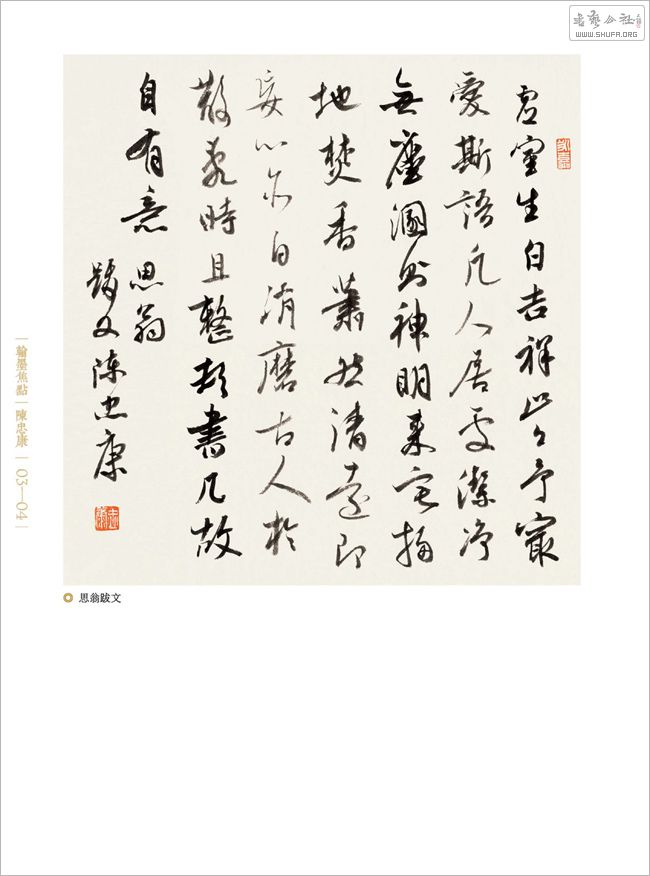 書藝公社
WWW.SHUFA.ORG
虛室生白吉祥止止予最
愛斯語凡人居處潔淨
無塵溷則神明來宅掃
地焚香蕭然清遠即
妄心亦自消磨古人於
散亂時且整頓書几故
自有意 思翁
跋文陳忠康
忠康
翰墨焦點 | 陳忠康 | 03—04
思翁跋文